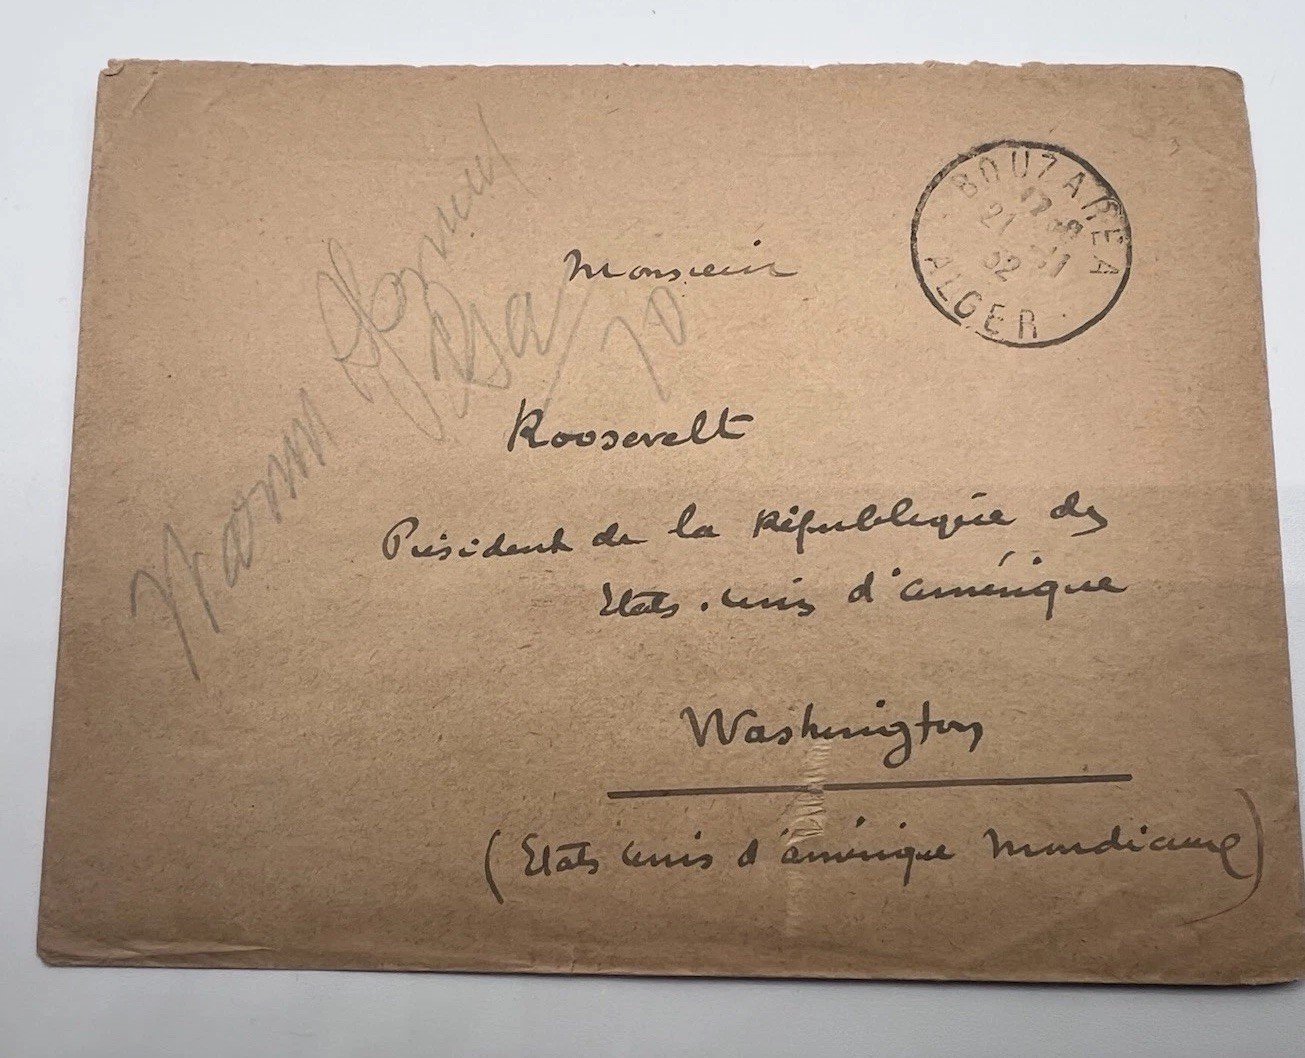 BOUZAREA
21 -11
32
ALGER
Monsieur
Roosevelt
Président de la République des
Etats-unis d'amérique
Washington
(Etats unis d'amérique
Warm